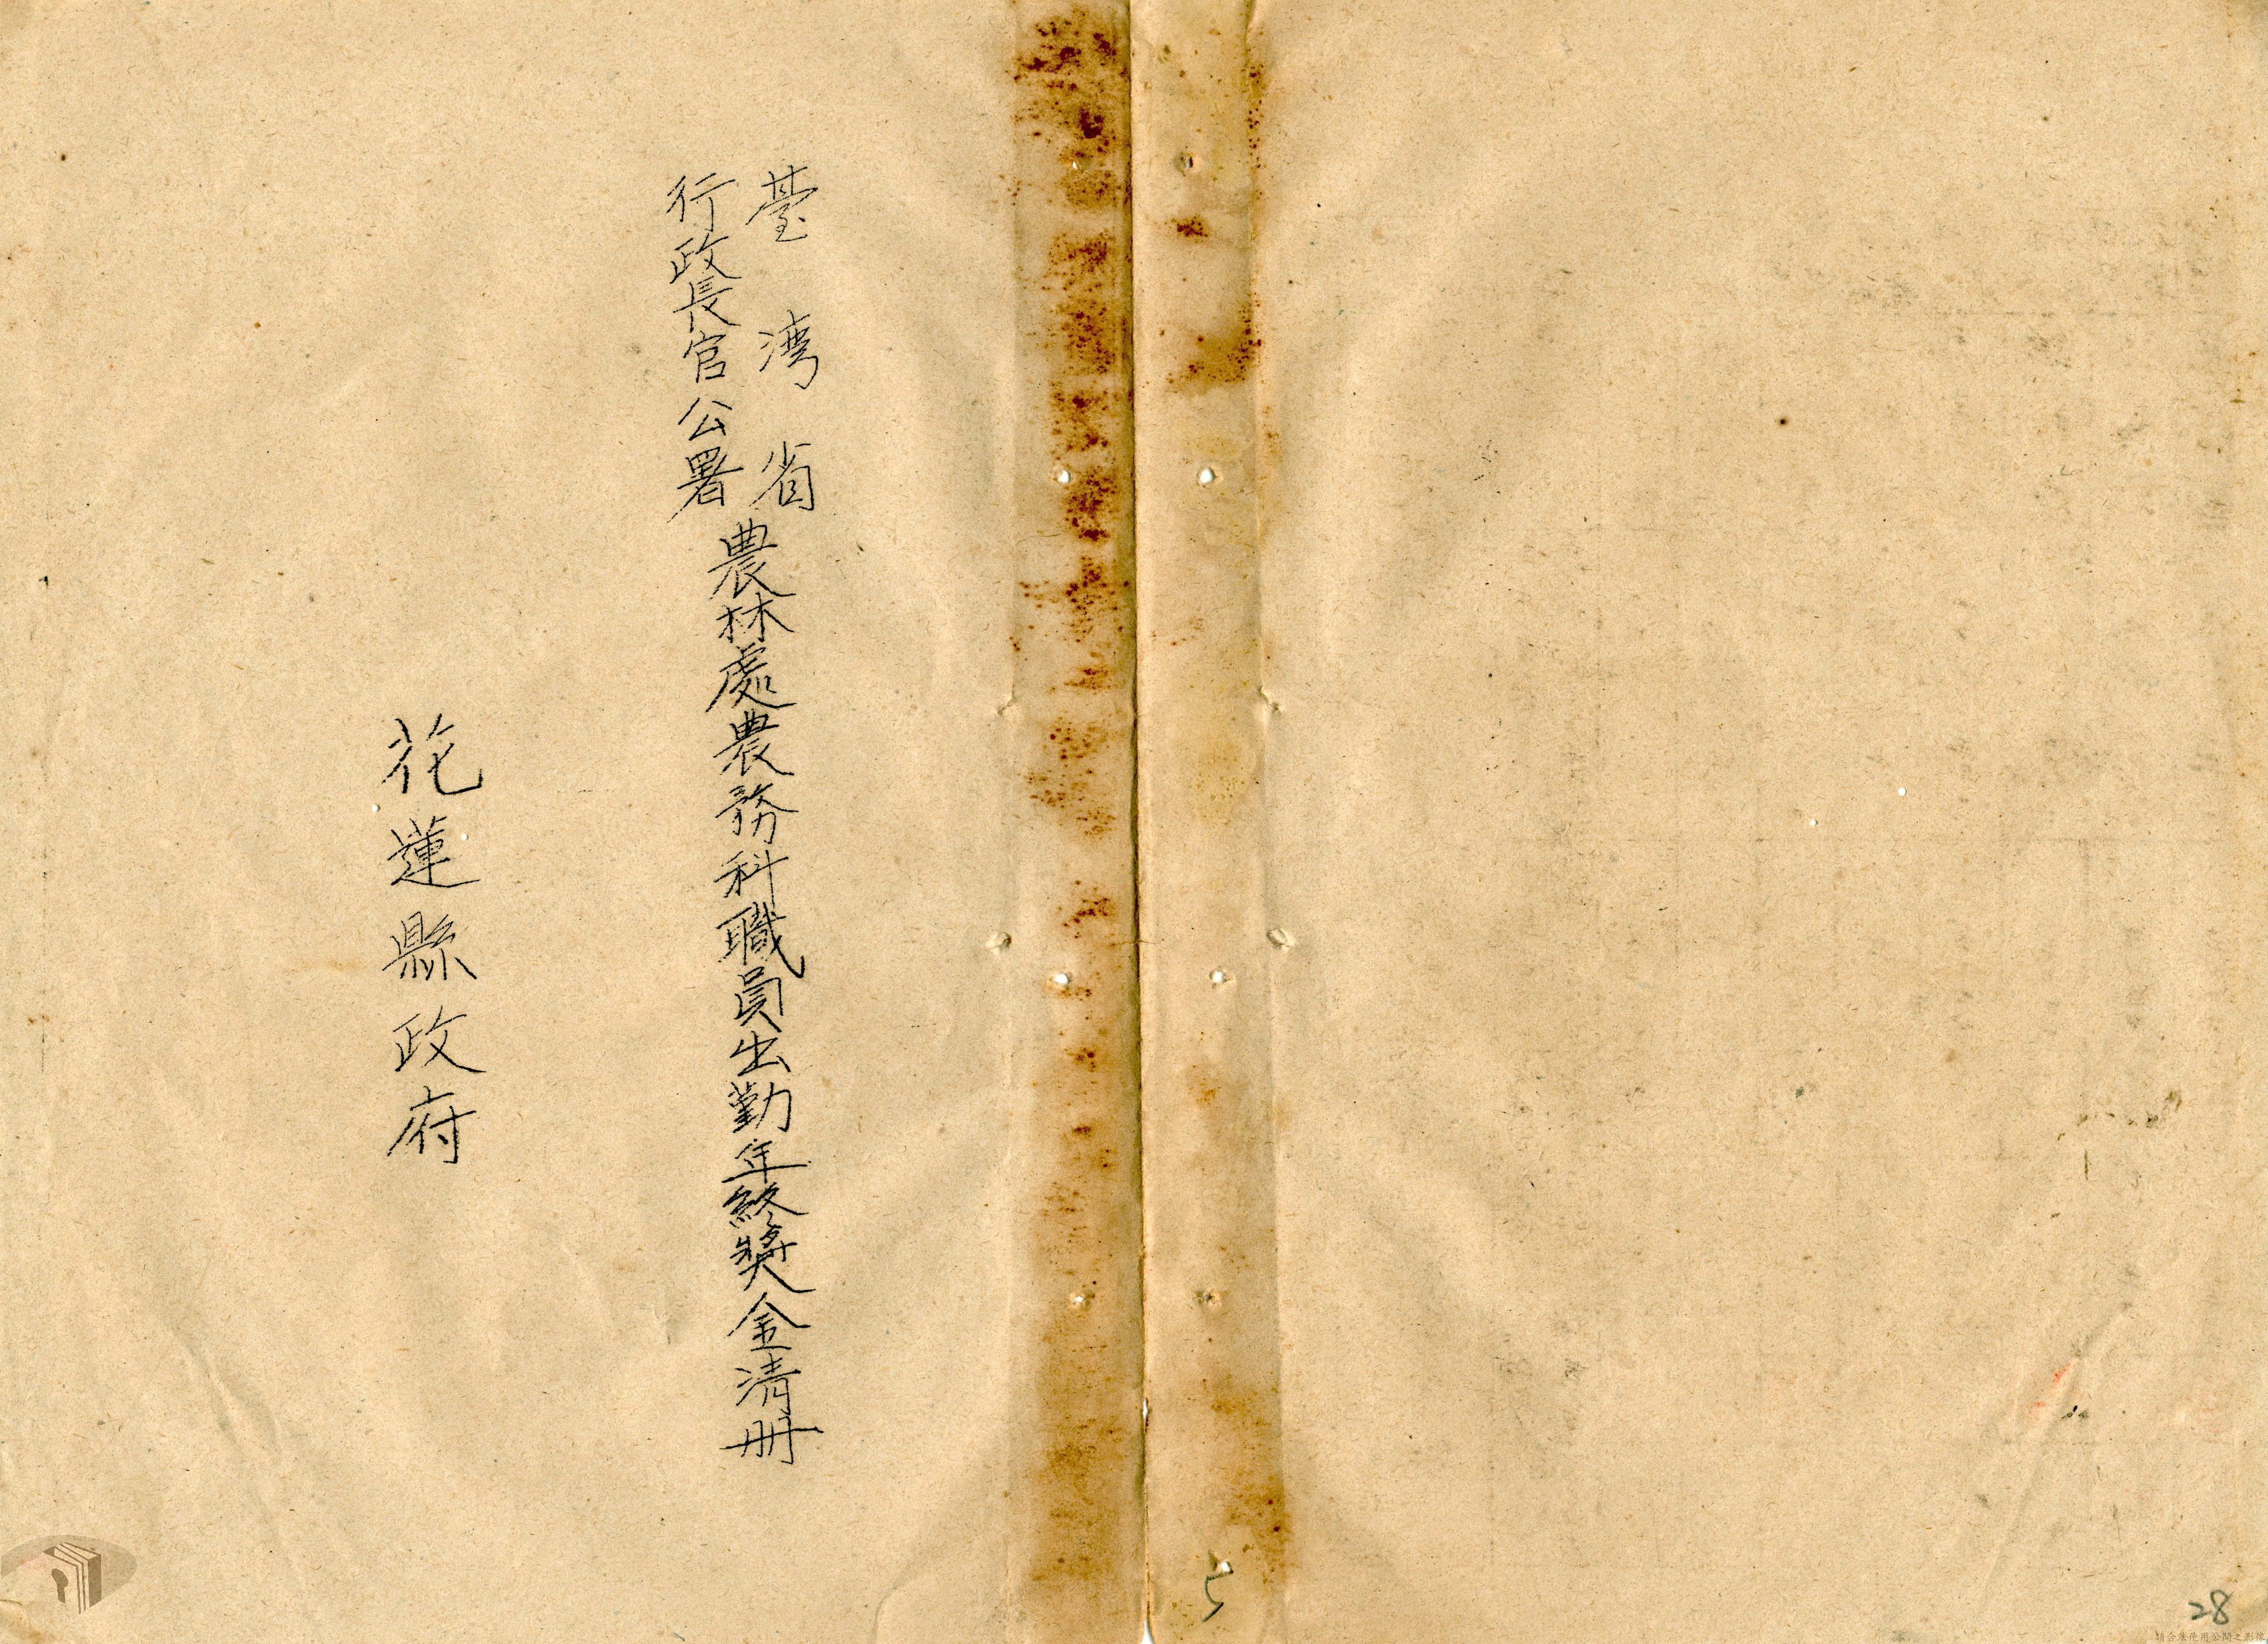 臺湾省
行政長官公署
農林處農務科職員出勤年終獎金清册
花蓮縣政府
28